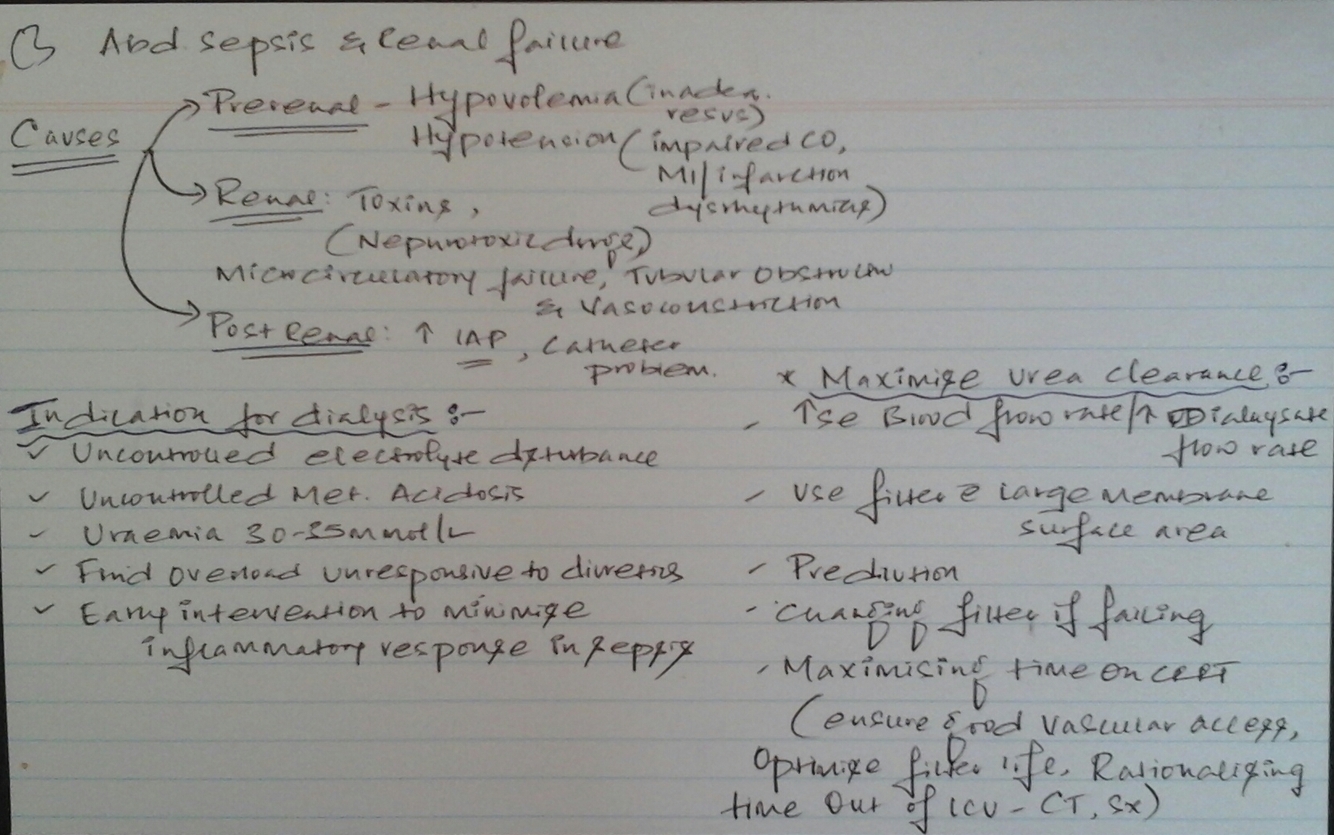 ③ Abd sepsis & Renal failure
Causes
Prerenal - Hypovolemia (inadeq.
resus)
Hypotension (impaired CO,
MI/infarction
dysrhythmias)
Renal: Toxins,
(Nephrotoxic drugs)
Microcirculatory failure, Tubular Obstruction
& Vasoconstriction
Post Renal: ↑ IAP, Catheter
problem.
Indication for dialysis :-
✓ Uncontrolled electrolyte disturbance
✓ Uncontrolled Met. Acidosis
✓ Uraemia 30-35mmol/L
✓ Fluid overload unresponsive to diuretics
✓ Early intervention to minimize
inflammatory response in sepsis
* Maximise urea clearance :-
- ↑se Blood flow rate/↑ Dialaysate
flow rate
- Use filter c̄ large Membrane
surface area
- Predilution
- Changing filter if failing
- Maximising time on CRRT
(ensure good vascular access,
Optimize filter life, Rationalizing
time Out of ICU - CT, Sx)